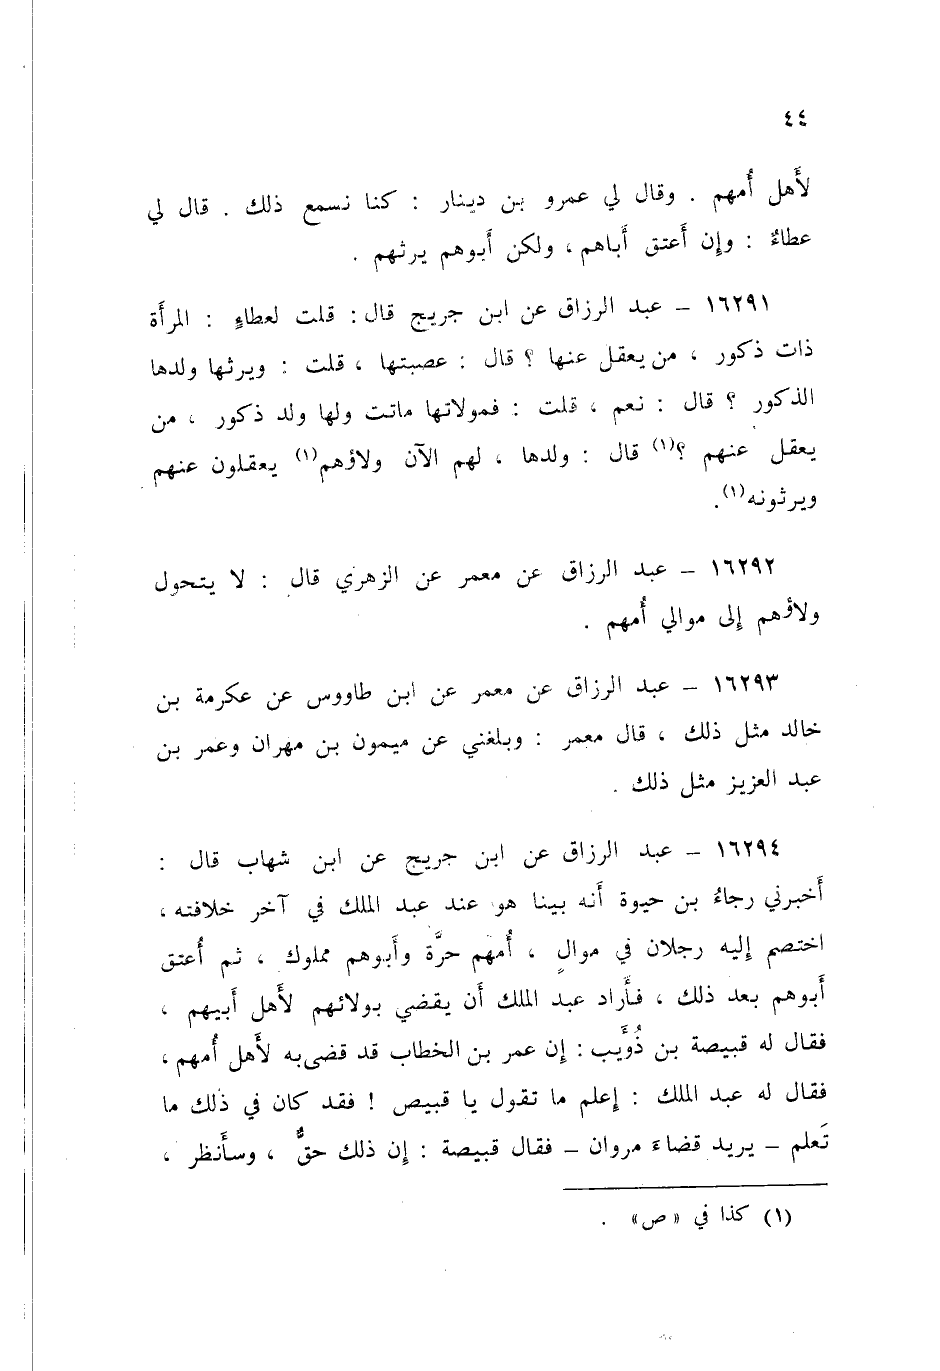 ٤٤
لأَهل أُمهم . وقال لي عمرو بن دينار : كنا نسمع ذلك . قال لي
عطاءٌ : وإن أَعتق أَباهم ، ولكن أَبوهم يرثهم .
١٦٢٩١ – عبد الرزاق عن ابن جريج قال : قلت لعطاءٍ : المرأَة
ذات ذكور ، من يعقل عنها ؟ قال : عصبتها ، قلت : ويرثها ولدها
الذكور ؟ قال : نعم ، قلت : فمولاتها ماتت ولها ولد ذكور ، من
يعقل عنهم ؟(١) قال : ولدها ، لهم الآن ولاؤهم(١) يعقلون عنهم
ويرثونه(١).
١٦٢٩٢ – عبد الرزاق عن معمر عن الزهري قال : لا يتحول
ولاؤهم إِلى موالي أُمهم .
١٦٢٩٣ – عبد الرزاق عن معمر عن ابن طاووس عن عكرمة بن
خالد مثل ذلك ، قال معمر : وبلغني عن ميمون بن مهران وعمر بن
عبد العزيز مثل ذلك .
١٦٢٩٤ – عبد الرزاق عن ابن جريج عن ابن شهاب قال :
أَخبرني رجاءُ بن حيوة أَنه بينا هو عند عبد الملك في آخر خلافته ،
اختصم إِليه رجلان في موالٍ ، أُمهم حرَّة وأَبوهم مملوك ، ثم أُعتق
أَبوهم بعد ذلك ، فأَراد عبد الملك أَن يقضي بولائهم لأَهل أَبيهم ،
فقال له قبيصة بن ذُوَيب : إِن عمر بن الخطاب قد قضى به لأَهل أُمهم ،
فقال له عبد الملك : إِعلم ما تقول يا قبيص ! فقد كان في ذلك ما
تَعلم – يريد قضاءَ مروان – فقال قبيصة : إِن ذلك حقٌّ ، وسأَنظر ،
(١) كذا في « ص » .